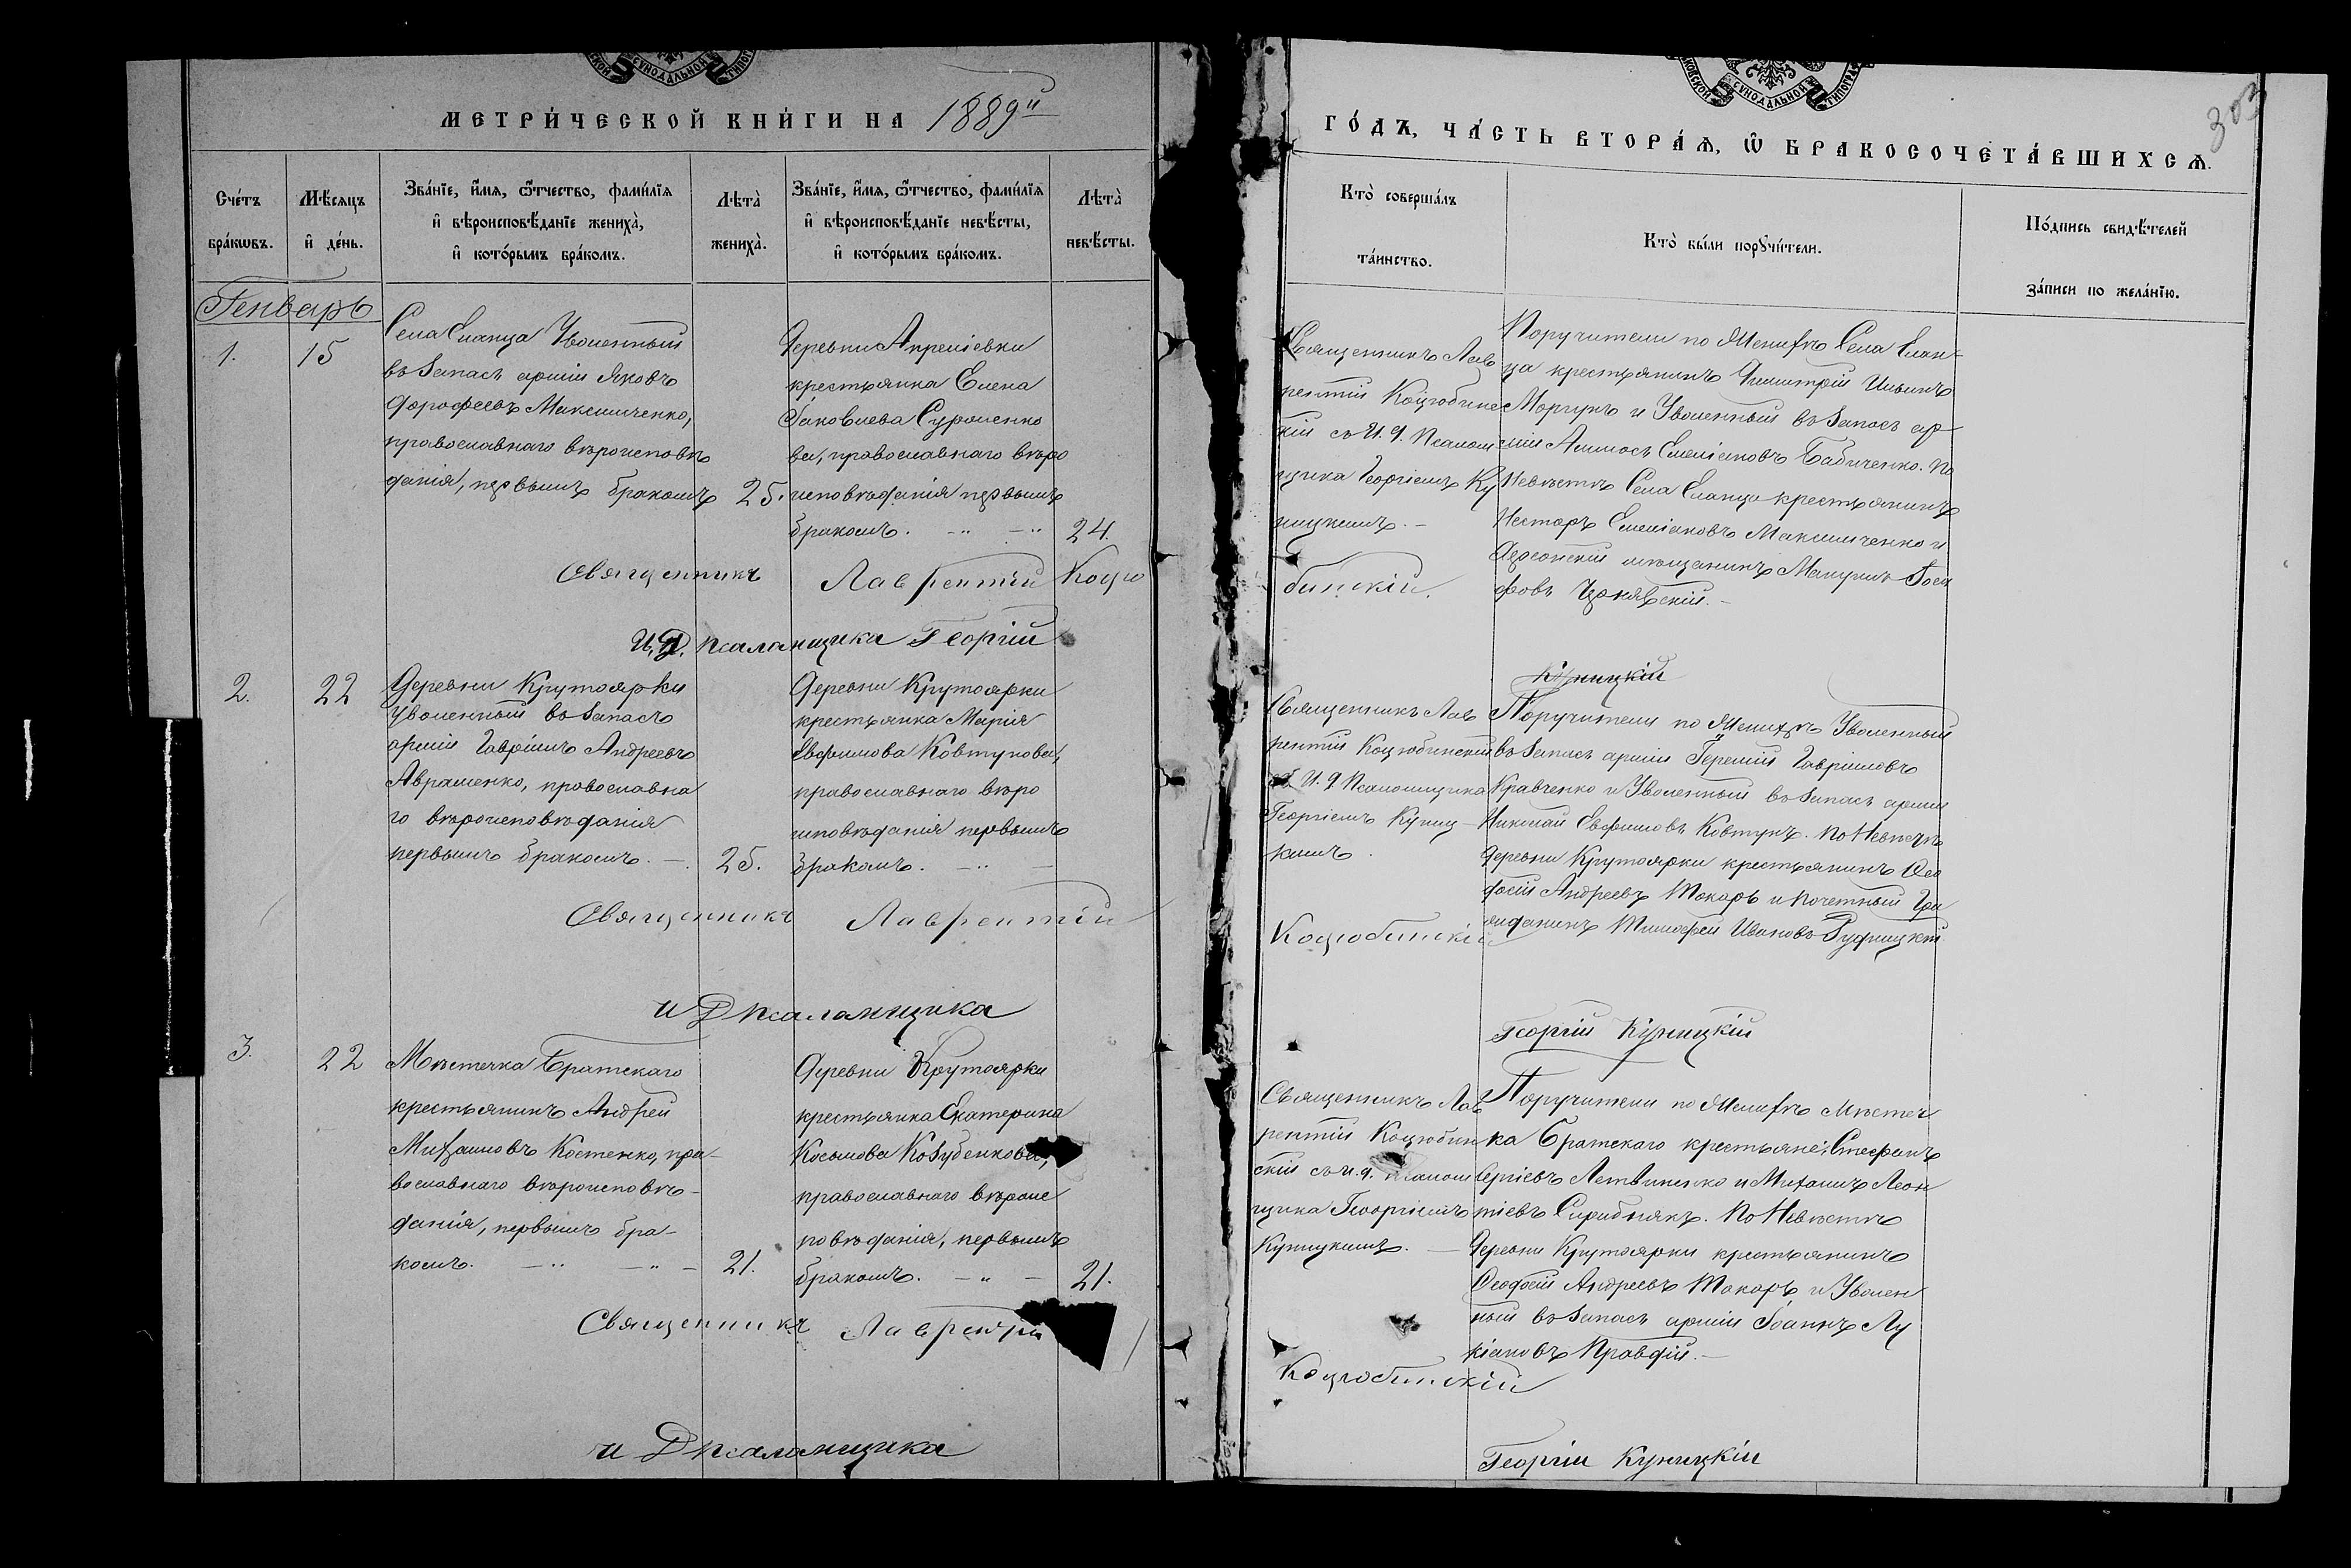 МЕТРИЧЕСКОЙ КНИГИ НА 1889й
Счетъ браковъ.
Мѣсяцъ и день.
Званіе, имя, отчество, фамилія и вѣроисповѣданіе жениха, и которымъ бракомъ.
Лѣта жениха.
Званіе, имя, отчество, фамилія и вѣроисповѣданіе невѣсты, и которымъ бракомъ.
Лѣта невѣсты.
Генварь
1.
15
Села Еланца Уволенный
въ запасъ арміи Яковъ
Дорофеевъ Максимченко,
православнаго вѣроисповѣ
данія, первымъ бракомъ
25.
Деревни
крестьянка Елена
Іаковлева
ва, православнаго вѣро
исповѣданія первымъ
бракомъ.
24.
Священникъ Лаврентій Коцю
И. Д. псаломщика Георгій
2.
22
Деревни Крутоярки
Уволенный въ запасъ
арміи Гавріилъ Андреевъ
Авраменко, православна
го вѣроисповѣданія
первымъ бракомъ.
25.
Деревни Крутоярки
крестьянка Марія
Евфимова Ковтунова,
православнаго вѣро
исповѣданія первымъ
бракомъ.
Священникъ Лаврентій
И Д псаломщика
3.
22
Мѣстечка Братскаго
крестьянинъ Андрей
Михаиловъ Костенко, пра-
вославнаго вѣроисповѣ-
данія, первымъ бра-
комъ.
21.
Деревни Крутоярки
крестьянка Екатерина
Косьмова Козубенкова,
православнаго вѣроис
повѣданія, первымъ
бракомъ.
21.
Священникъ Лаврентій
и Д псаломщика
303
ГОДЪ, ЧАСТЬ ВТОРАЯ, О БРАКОСОЧЕТАВШИХСЯ.
Кто совершалъ таинство.
Кто были поручители.
Подпись свидѣтелей записи по желанію.
Священникъ Лав
рентій Коцюбинс
кій съ И. Д. Псалом
щика Георгіемъ Ку
ницкимъ.
Поручители по Женихѣ Села Елан-
ца крестьянинъ Димитрій Ильинъ
Моргунъ и Уволенный въ запасъ ар-
міи Емеліановъ Бабиченко. По
Невѣстѣ Села Еланца крестьянинъ
Несторъ Емеліановъ Максимченко и
Херсонскій мѣщанинъ Іоси
фовъ
бинскій.
Куницкій
Священникъ Лав
рентій Коцюбинскій
съ И. Д Псаломщика
Георгіемъ Куниц-
кимъ.
Поручители по Женихѣ Уволенный
въ запасъ арміи Іеремій Гавріиловъ
Кравченко и Уволенный въ запасъ арміи
Николай Евфимовъ Ковтунъ. По Невѣстѣ
Деревни Крутоярки крестьянинъ Ѳео
досій Андреевъ Токарь и почетный Гра
жданинъ Тимофей Ивановъ Рудницкій
Коцюбинскій
Георгій Куницкій
Священникъ Лав
рентій Коцюбин
скій съ и. д. псалом
щика Георгіемъ
Куницкимъ.
Поручители по Женихѣ Мѣстеч
ка Братскаго крестьяне: Стефанъ
Сергіевъ Летвиненко и Михаилъ Леон
тіевъ По Невѣстѣ
Деревни Крутоярки крестьянинъ
Ѳеодосій Андреевъ Токарь и Уволен
ный въ запасъ арміи Іоаннъ Лу
кіановъ Правдій.
Коцюбинскій
Георгій Куницкій